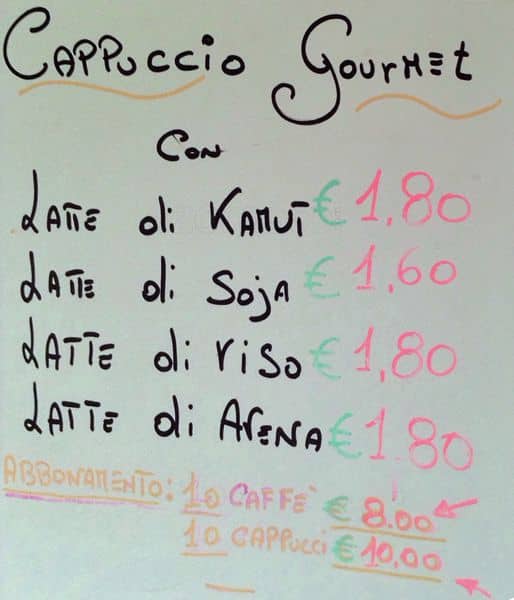 Cappuccio Gourmet
Con
Latte di Kamut € 1,80
Latte di Soja € 1,60
Latte di riso € 1,80
Latte di Avena € 1.80
ABBONAMENTO: 10 CAFFE' € 8.00
10 CAPPUCCI € 10,00